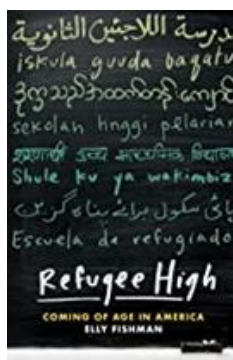 درسة اللاجئين الثانوية
iskula guuda baqatu
ဒုက္ခသည်အထက်တန်းကျောင်
sekolah tinggi pelarian
शरणार्थी उच्च माध्यमिक
Shule ku ya wakimbiz
ہائی سکول برائے پناہ گزین
Escuela de refugiado
Refugee High
COMING OF AGE IN AMERICA
ELLY FISHMAN